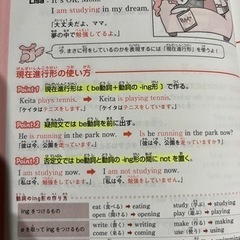 It's OK, Mom.
I am studying in my dream.
「大丈夫だよ、ママ。
夢の中で勉強してるよ。」
今、まさに何をしているのかを表現するには「現在進行形」を使うよ！
現在進行形の使い方
Point 1 現在進行形は〔be動詞＋動詞の -ing形〕で作る。
Keita plays tennis. → Keita is playing tennis.
「ケイタはテニスをします。」 「ケイタはテニスをしています。」
Point 2 疑問文では be動詞を前に出す。
He is running in the park now. → Is he running in the park now?
「彼は今、公園を走っています。」 「彼は今、公園で走っていますか。」
Point 3 否定文では be動詞と動詞の -ing形の間に not を置く。
I am studying. → I am not studying.
「私は勉強をしています。」 「私は勉強をしていません。」
動詞の ing 形の作り方
ing をつけるもの
eat（食べる）→ eating
study（学ぶ）→ studying
open（開ける）→ opening
play（遊ぶ）→ playing
e を取って ing をつけるもの
come（来る）→ coming
make（作る）→ making
write（書く）→ writing
use（使う）→ using